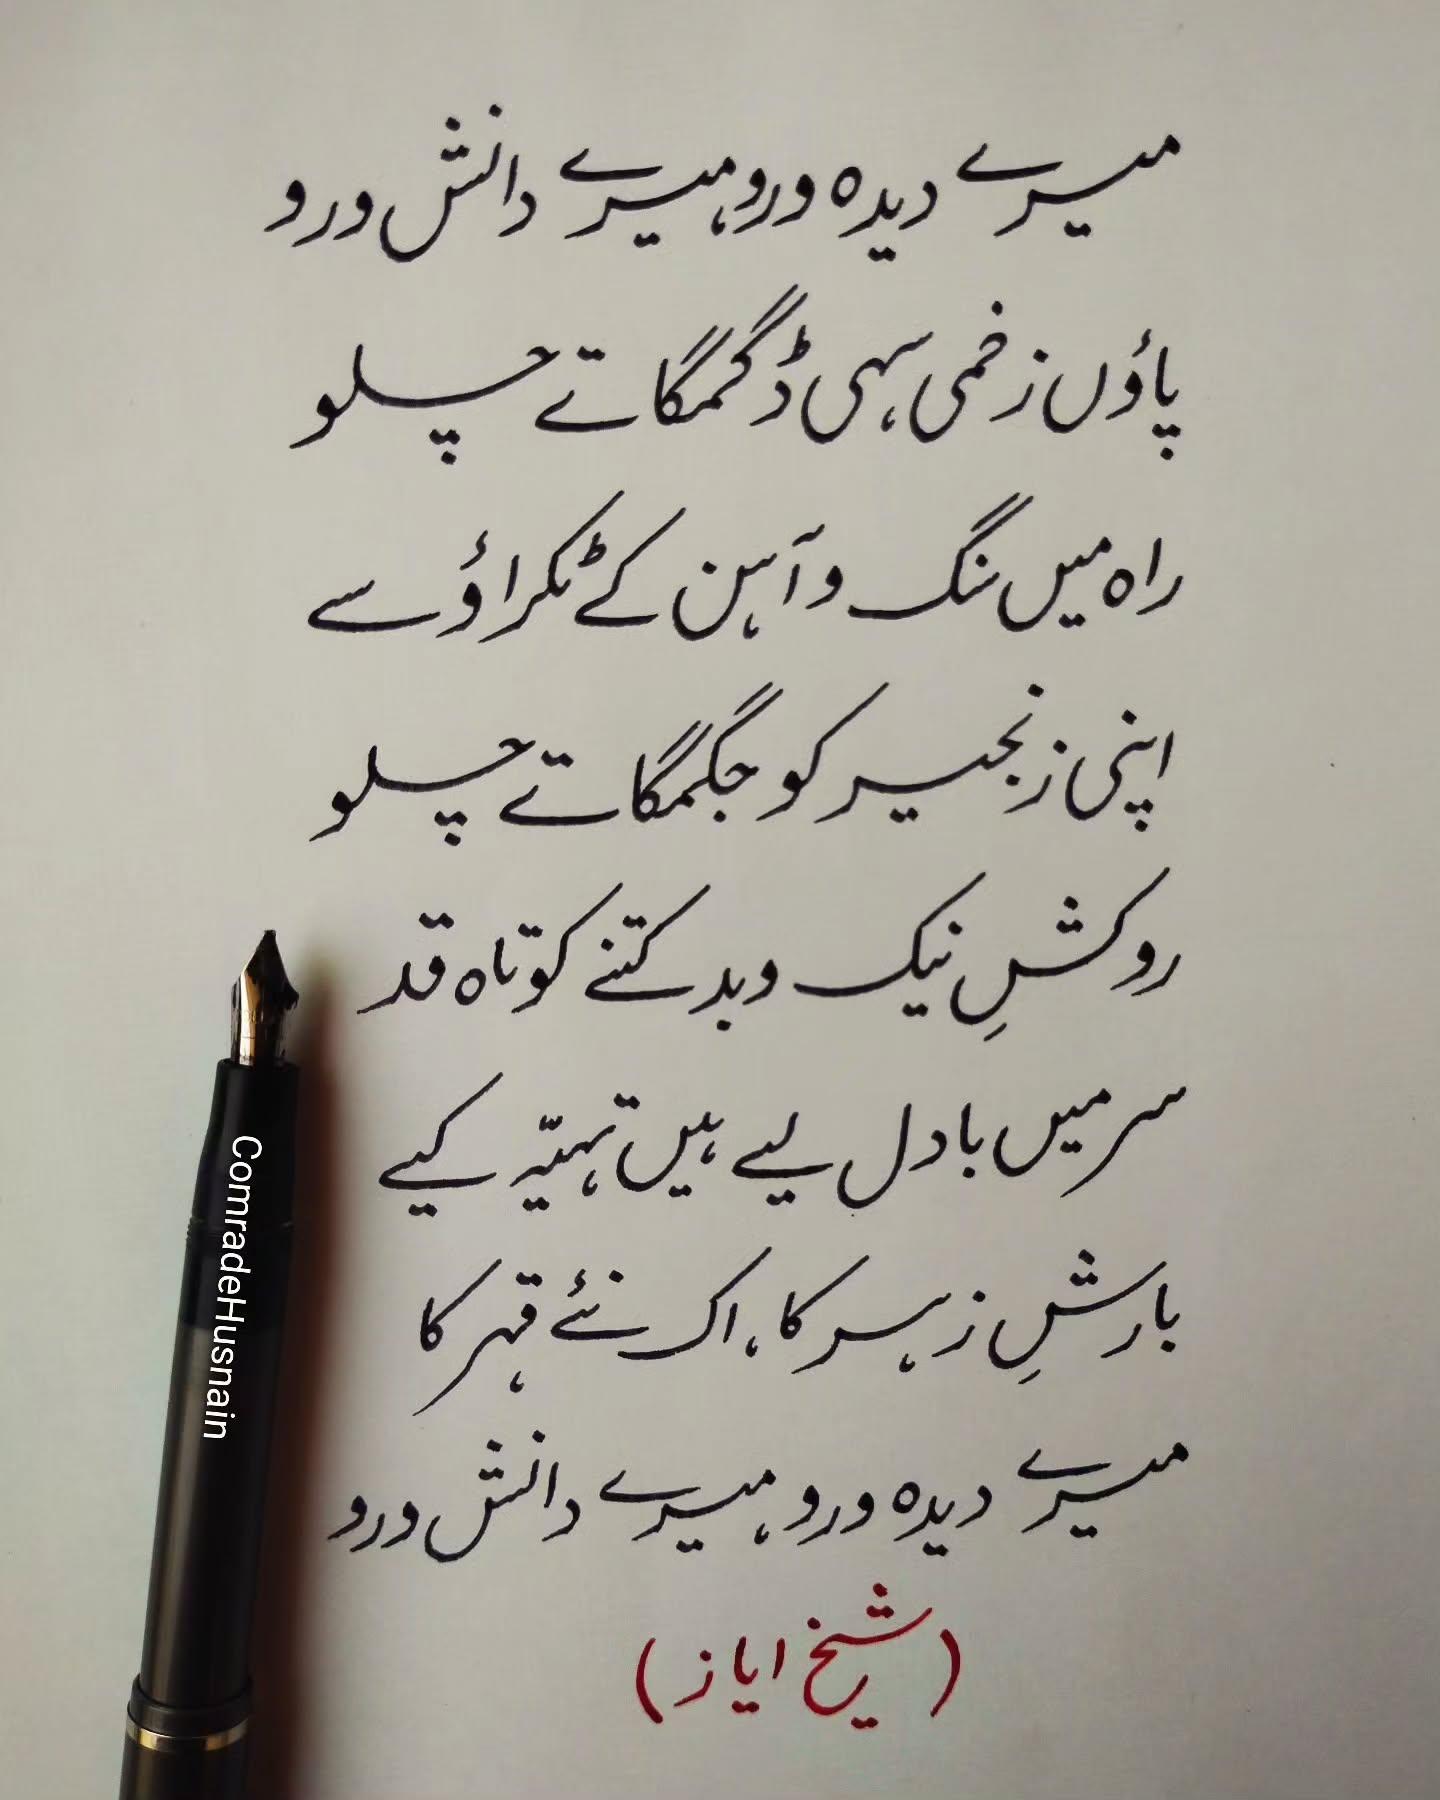 میرے دیدہ ورو، میرے دانش ورو
پاؤں زخمی سہی ڈگمگاتے چلو
راہ میں سنگ و آہن کے ٹکراؤ سے
اپنی زنجیر کو جگمگاتے چلو
روکشِ نیک و بد کتنے کوتاہ قد
سر میں بادل لیے ہیں تہیّہ کیے
بارشِ زہر کا، اک نئے قہر کا
میرے دیدہ ورو، میرے دانش ورو
(شیخ ایاز)
ComradeHusnain